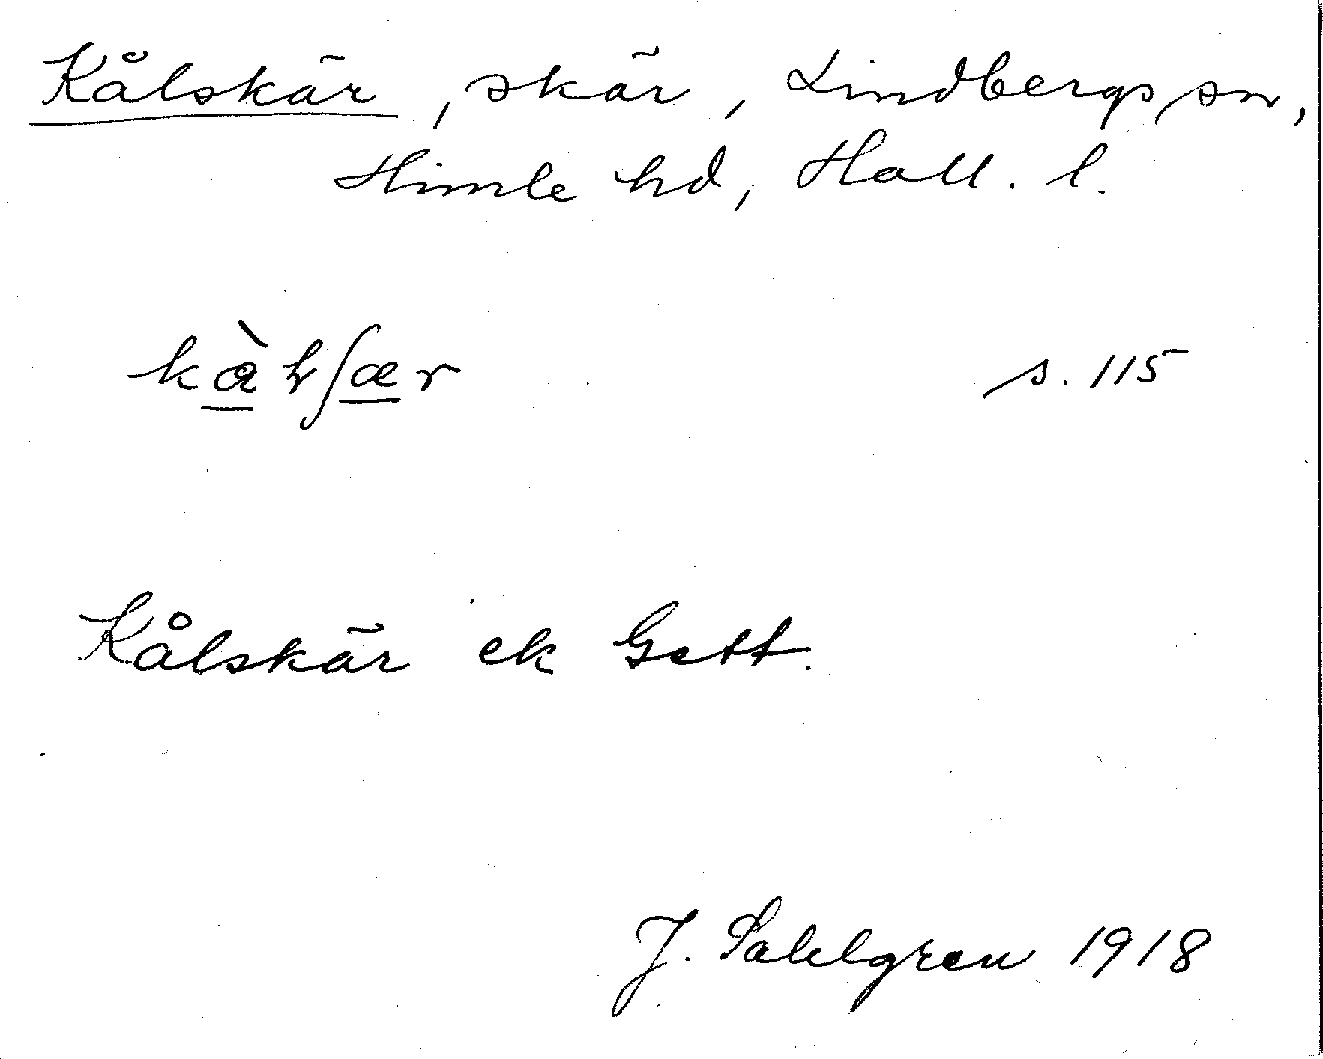 Kålskär, skär, Lindbergs sn,
Himle hd, Hall. l.
s. 115
Kålskär ek Gett.
J. Sahlgren 1918